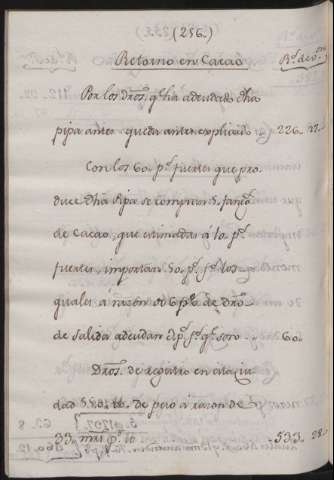 (256.)
Retorno en Cacao R.s de v.on
Por los dros. q.e ha adeudado dha
pipa antes queda antes explicado 226. 27.
Con los 60. p.s fuertes que pro
duce dha Pipa se compran 5. fang.s
de Cacao, que estimadas á 10. p.s
fuertes, importan 50. p.s f.s los
quales a razon de 6 p% de dro.
de salida adeudan 3 p.s f.s q.e son 60.
Dros. de registro en esta ciu
dad 550. lb. de peso á razon de
33. mrs p.r lb 533. 28.